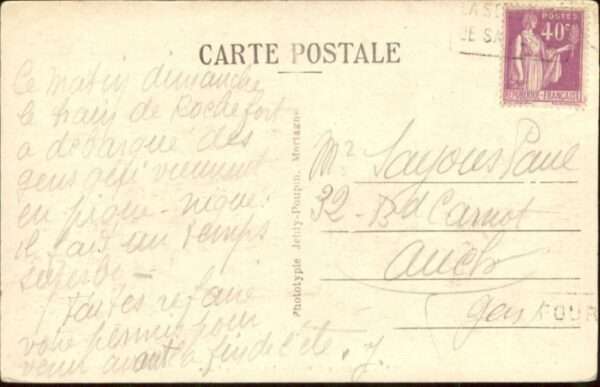 CARTE POSTALE
Ce matin dimanche,
le train de Rochefort
a débarqué des
gens qui viennent
en pique-nique:
il fait un temps
superbe -
Faites refaire
votre permis pour
venir avant la fin de l'été. y.
Phototypie Jehly-Poupin, Mortagne
POSTES
40c
FRANÇAISE
Mr Sayous Paul
32 - Bd Carnot
Auch
Gers
FOUR
LA S
JE SA